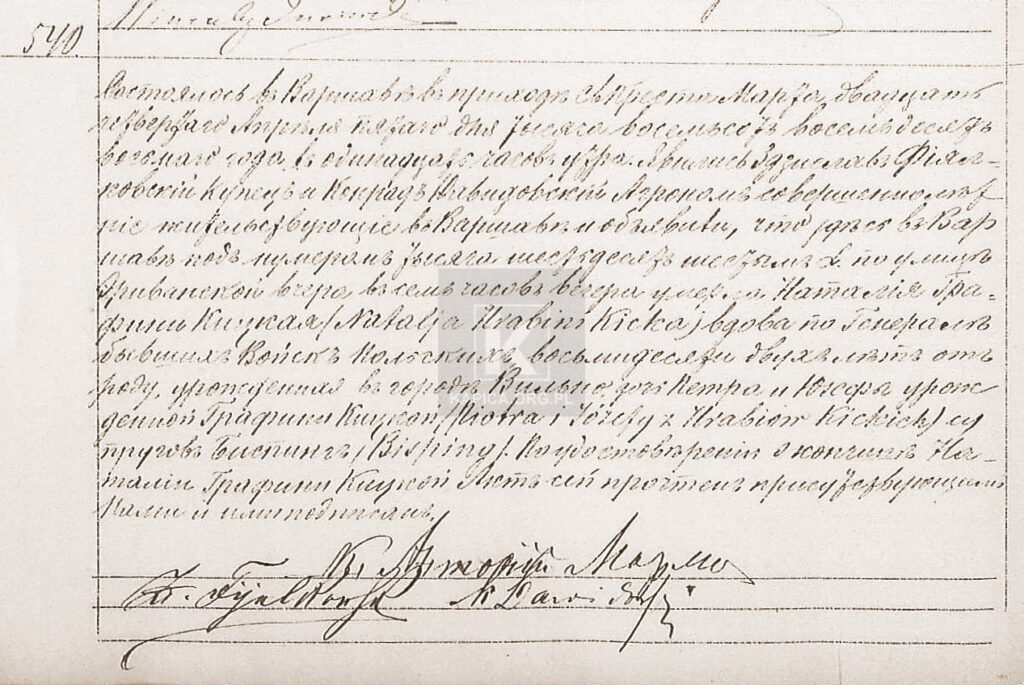 540
Состоялось въ Варшавѣ въ приходѣ Св. Креста Марта двадцать
четвертаго Апрѣля пятаго дня тысяча восемьсотъ восемьдесятъ
восьмаго года, въ одинадцать часовъ утра. Явились Здзиславъ Фіял-
ковскій Купецъ и Конрадъ Агрономъ совершеннолѣт
ніе жительствующіе въ Варшавѣ и объявили, что здѣсь въ Вар
шавѣ подъ нумеромъ тысяча шестьдесятъ шестымъ L. по улицѣ
Эриванской вчера въ семь часовъ вечера умерла Наталія Гра-
финя Кицкая /Natalja Hrabini Kicka/ вдова по Генералѣ
бывшихъ Войскъ Польскихъ, восьмидесяти двухъ лѣтъ отъ
роду, урожденная въ городѣ Вильно, дочь Петра и Юзефы урож
денной Графини Кицкой /Piotra i Józefy z Hrabiow Kickich/ су
пруговъ Биспингъ /Bisping/. По удостовѣреніи о кончинѣ На-
таліи Графини Кицкой Актъ сей прочтенъ присутствующимъ
Нами и ими подписанъ.
К. Антоній
Z. Fijałkowski K Dawidowski
KAPICA.ORG.PL